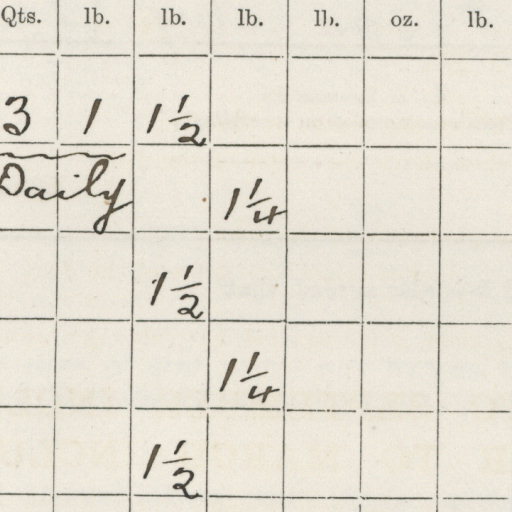 Qts. lb. lb. lb. lb. oz. lb.
3 1 1½
Daily 1¼
1½
1¼
1½